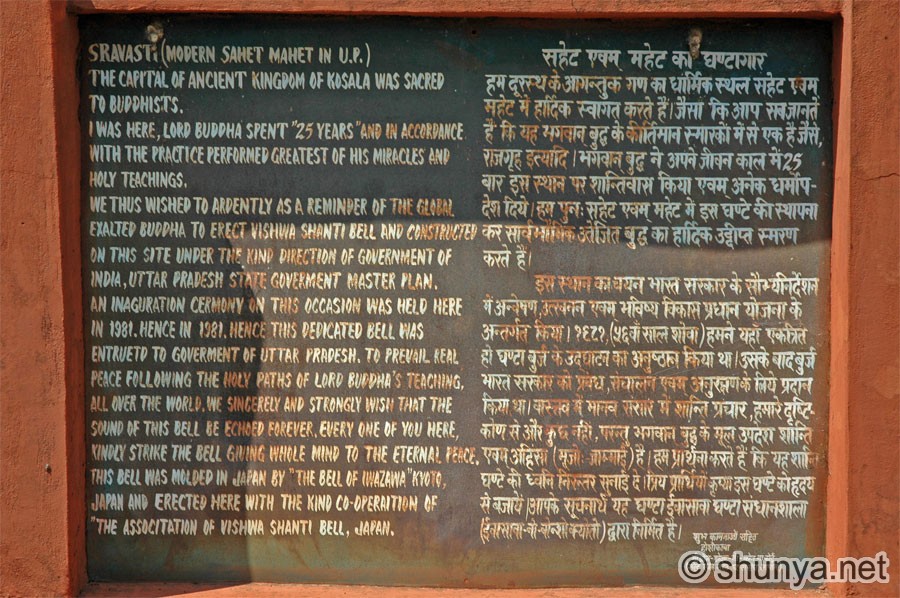 SRAVASTI (MODERN SAHET MAHET IN U.P.)
THE CAPITAL OF ANCIENT KINGDOM OF KOSALA WAS SACRED
TO BUDDHISTS.
I WAS HERE, LORD BUDDHA SPENT "25 YEARS" AND IN ACCORDANCE
WITH THE PRACTICE PERFORMED GREATEST OF HIS MIRACLES AND
HOLY TEACHINGS.
WE THUS WISHED TO ARDENTLY AS A REMINDER OF THE GLOBAL
EXALTED BUDDHA TO ERECT VISHWA SHANTI BELL AND CONSTRUCTED
ON THIS SITE UNDER THE KIND DIRECTION OF GOVERNMENT OF
INDIA, UTTAR PRADESH STATE GOVERMENT MASTER PLAN.
AN INAGURATION CERMONY ON THIS OCCASION WAS HELD HERE
IN 1981. HENCE IN 1981. HENCE THIS DEDICATED BELL WAS
ENTRUETD TO GOVERMENT OF UTTAR PRADESH. TO PREVAIL REAL
PEACE FOLLOWING THE HOLY PATHS OF LORD BUDDHA'S TEACHING,
ALL OVER THE WORLD. WE SINCERELY AND STRONGLY WISH THAT THE
SOUND OF THIS BELL BE ECHOED FOREVER. EVERY ONE OF YOU HERE,
KINDLY STRIKE THE BELL GIVING WHOLE MIND TO THE ETERNAL PEACE,
THIS BELL WAS MOLDED IN JAPAN BY "THE BELL OF IWAZAWA" KYOTO,
JAPAN AND ERECTED HERE WITH THE KIND CO-OPERAITION OF
"THE ASSOCITATION OF VISHWA SHANTI BELL, JAPAN.
सहेट एवम महेट का घण्टागार
हम दूरस्थ के आगन्तुक गण का धार्मिक स्थल सहेट एवम
महेट में हार्दिक स्वागत करते हैं। जैसा कि आप सब जानते
हैं कि यह भगवान बुद्ध के कीर्तिमान स्मारकों में से एक है जैसे,
राजगृह इत्यादि। भगवान बुद्ध ने अपने जीवन काल में 25
बार इस स्थान पर शान्तिवास किया एवम अनेक धर्मोप-
देश दिये। हम पुनः सहेट एवम् महेट में इस घण्टे की स्थापना
कर सार्वभौमिक बुद्ध का हार्दिक उद्दीप्त स्मरण
करते हैं।
इस स्थान का चयन भारत सरकार के सौम्य निर्देशन
में अन्वेषण, उत्खनन एवम भविष्य विकास प्रधान योजना के
अन्तर्गत किया। १९८१, (५६वां साल शोवा) हमने यहाँ एकत्रित
हो घण्टा बुर्ज के उदघाटन का अनुष्ठान किया था। उसके बाद बुर्ज
भारत सरकार को प्रबंध, संचालन एवम् अनुरक्षण के लिये प्रदान
किया था। वास्तव में मानव संसार में शान्ति प्रचार, हमारे दृष्टि-
कोण से और कुछ नहीं, परन्तु भगवान बुद्ध के मूल उपदेश शान्ति
एवम अहिंसा है। हम प्रार्थना करते हैं कि यह शान्ति
घण्टे की ध्वनि निरन्तर सुनाई दे। प्रिय प्रार्थियों कृपया इस घण्टे को हृदय
से बजायें। आपके सूचनार्थ यह घण्टा ईवासावा घण्टा संधानशाला
द्वारा निर्मित है।
शुभ कामनाओं सहित
©shunya.net